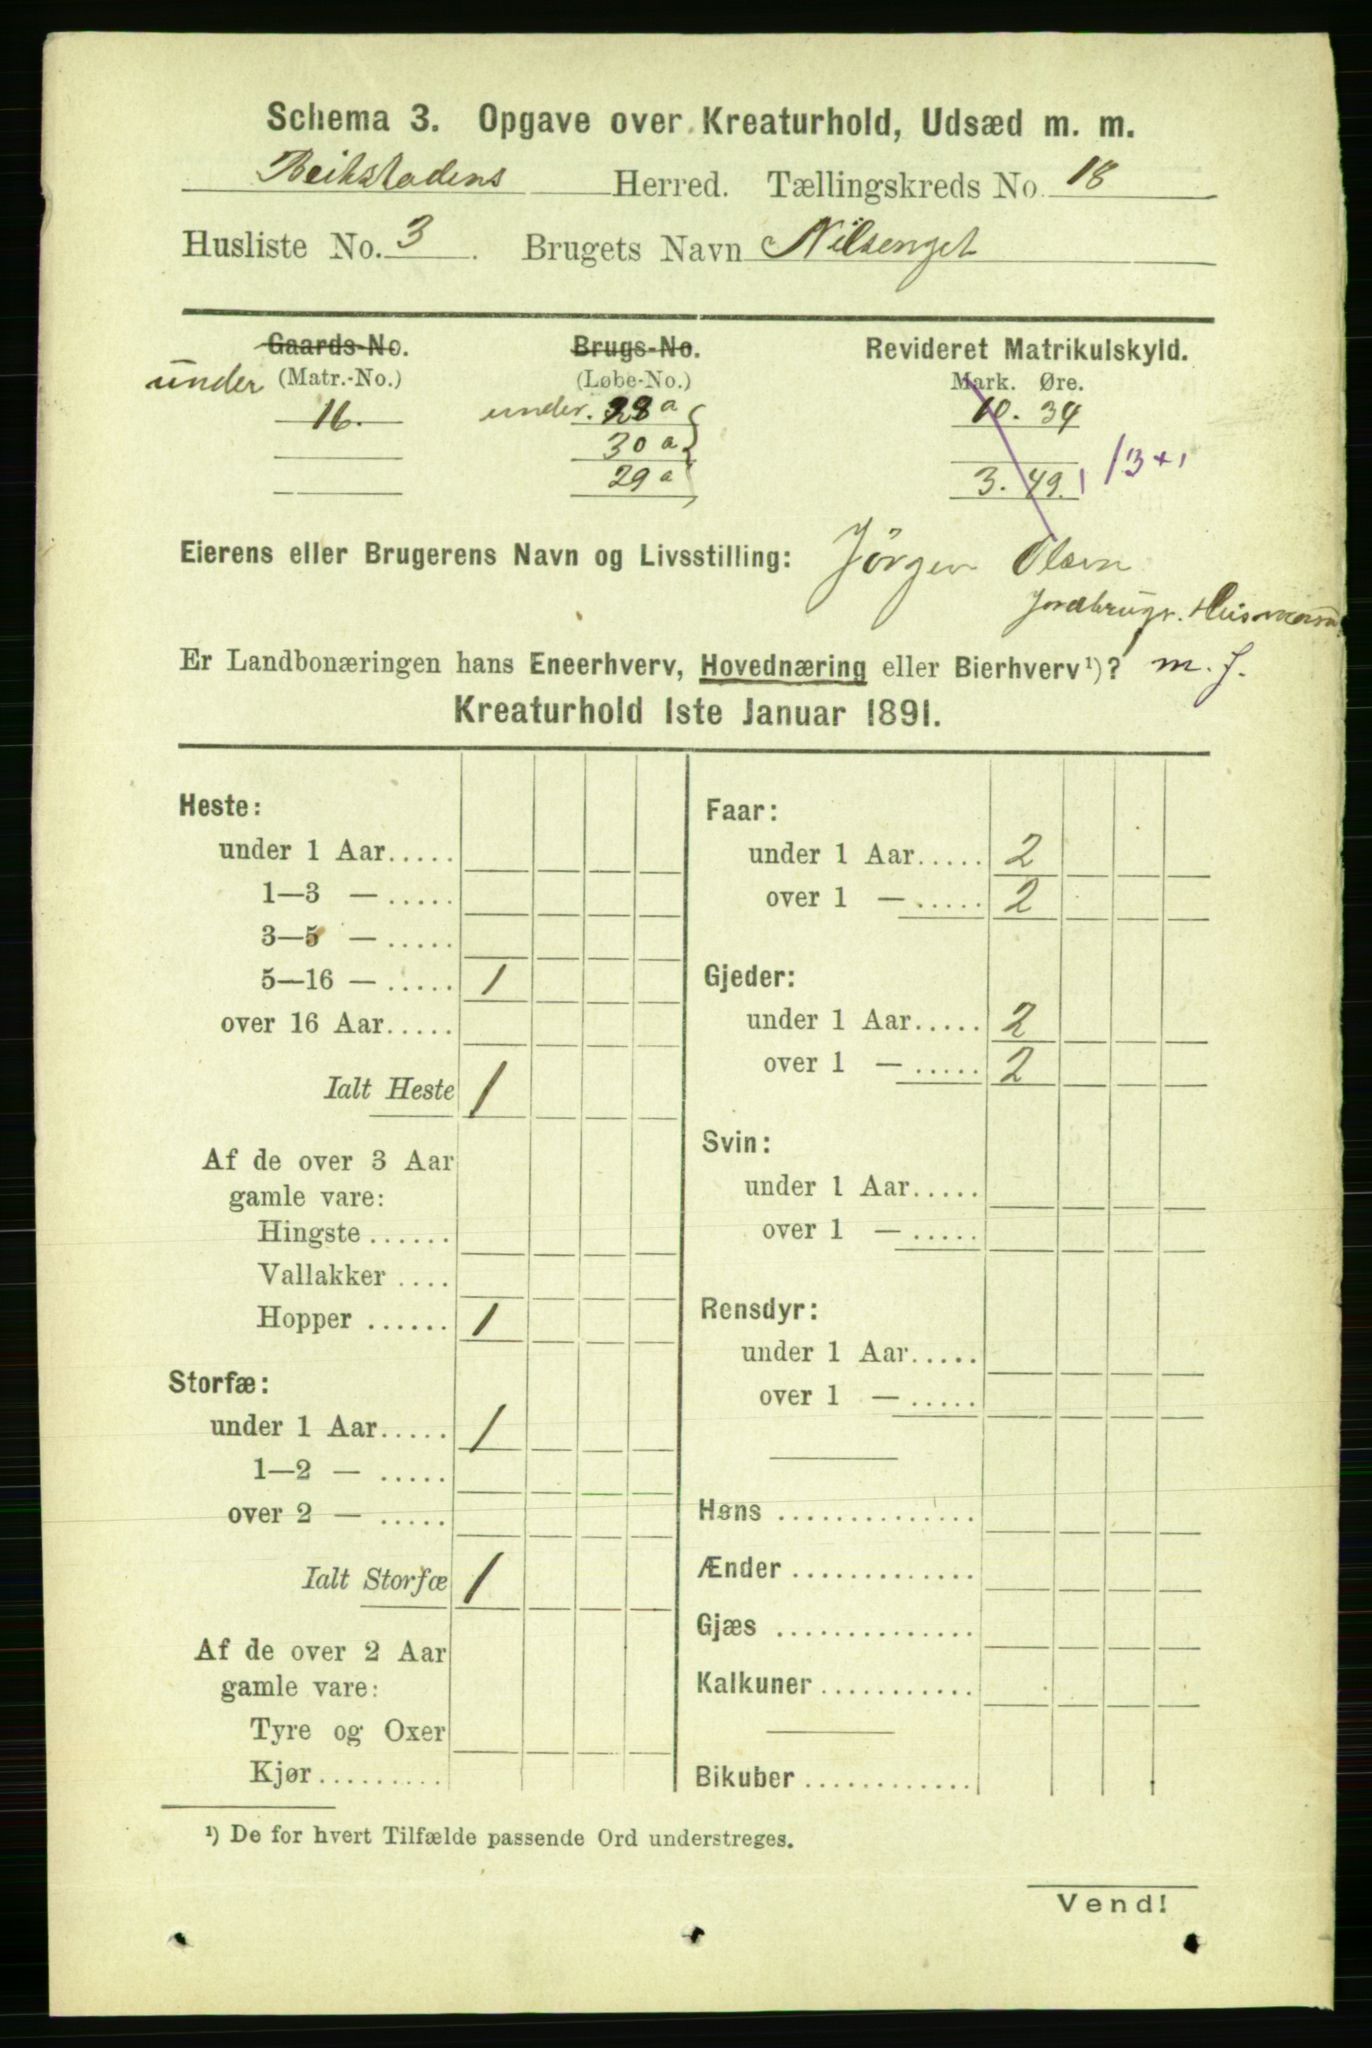 Schema 3. Opgave over Kreaturhold, Udsæd m. m.
Beitstadens Herred. Tællingskreds No. 18
Husliste No. 3. Brugets Navn Nilsenget
Gaards-No. Brugs-No. Revideret Matrikulskyld.
under (Matr.-No.) (Løbe-No.) Mark. Øre.
16. under. 28 a 10. 34
30 a
29 a 3. 49. 1 /3+1
Eierens eller Brugerens Navn og Livsstilling: Jörgen Olsen
Jordbruger. Husmand
Er Landbonæringen hans Eneerhverv, Hovednæring eller Bierhverv¹)? m. J.
Kreaturhold 1ste Januar 1891.
Heste:
under 1 Aar.....
1—3 — .....
3—5 — .....
5—16 — ..... 1
over 16 Aar.....
Ialt Heste 1
Af de over 3 Aar
gamle vare:
Hingste ......
Vallakker ....
Hopper ...... 1
Storfæ:
under 1 Aar..... 1
1—2 — .....
over 2 — .....
Ialt Storfæ 1
Af de over 2 Aar
gamle vare:
Tyre og Oxer
Kjør.........
Faar:
under 1 Aar..... 2
over 1 — ..... 2
Gjeder:
under 1 Aar..... 2
over 1 — ..... 2
Svin:
under 1 Aar.....
over 1 — .....
Rensdyr:
under 1 Aar.....
over 1 — .....
Høns ..............
Ænder .............
Gjæs ..............
Kalkuner ...........
Bikuber .............
¹) De for hvert Tilfælde passende Ord understreges.
Vend!